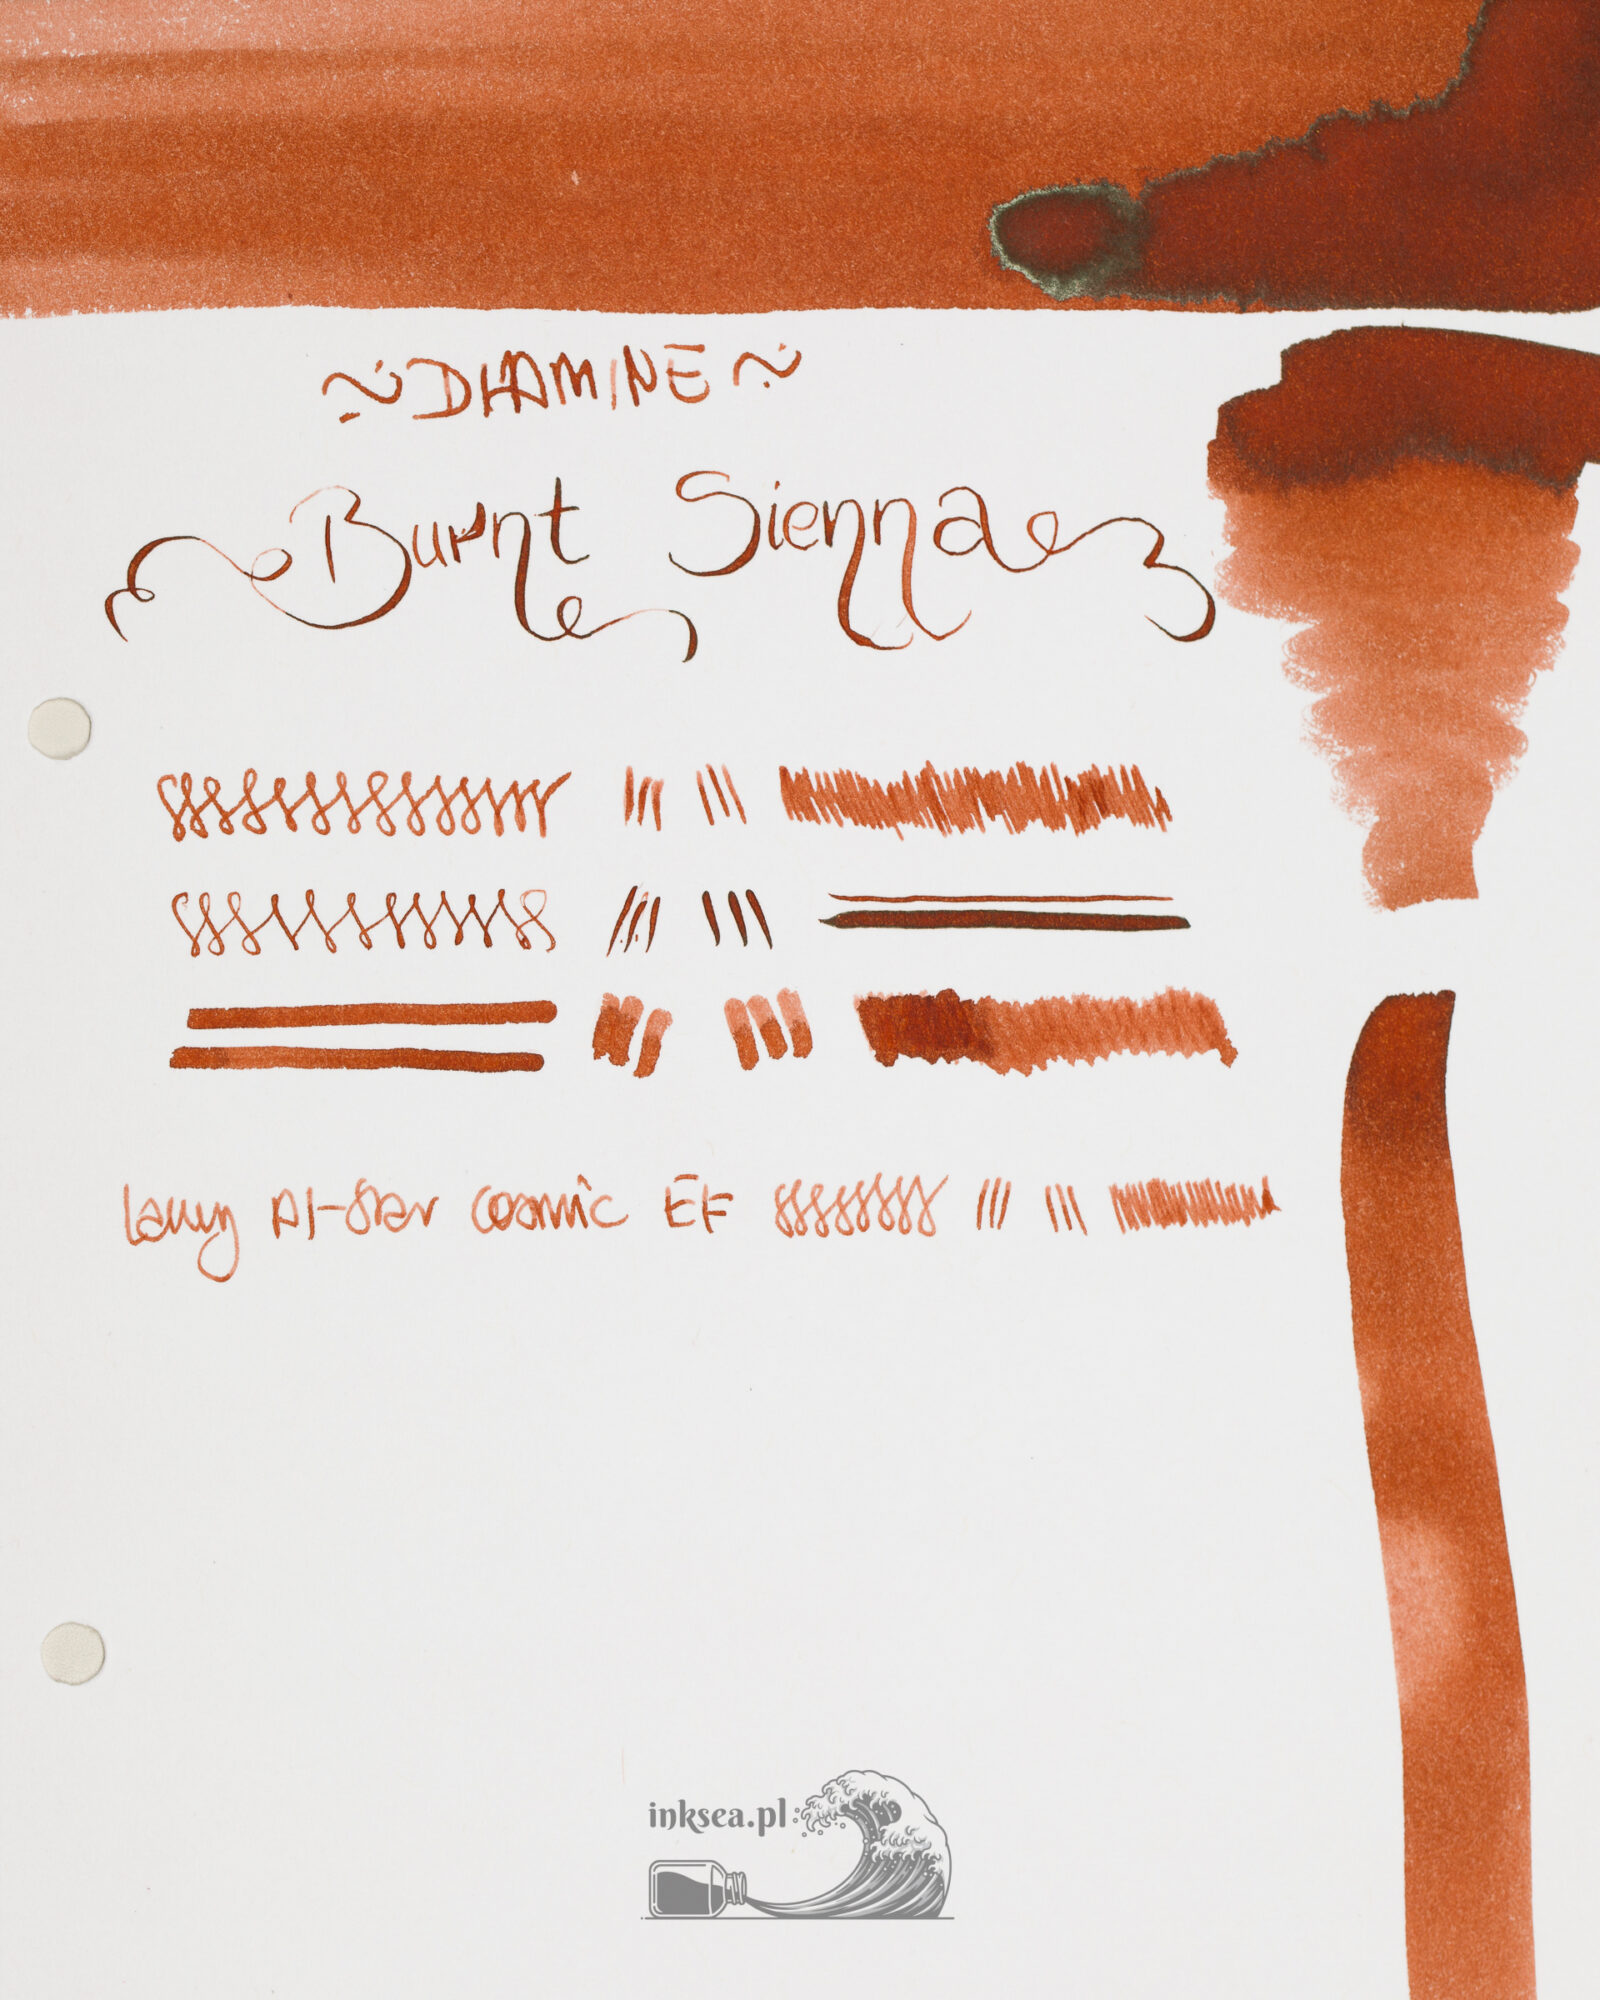 ~ DIAMINE ~
Burnt Sienna
Lamy Al-Star Cosmic EF
inksea.pl